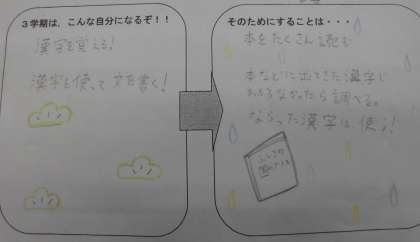 3学期は、こんな自分になるぞ！！
漢字を覚える！
漢字を使って文を書く！
そのためにすることは・・・
本をたくさん読む
本などに出てきた漢字で
わからなかったら調べる。
ならった漢字は使う！